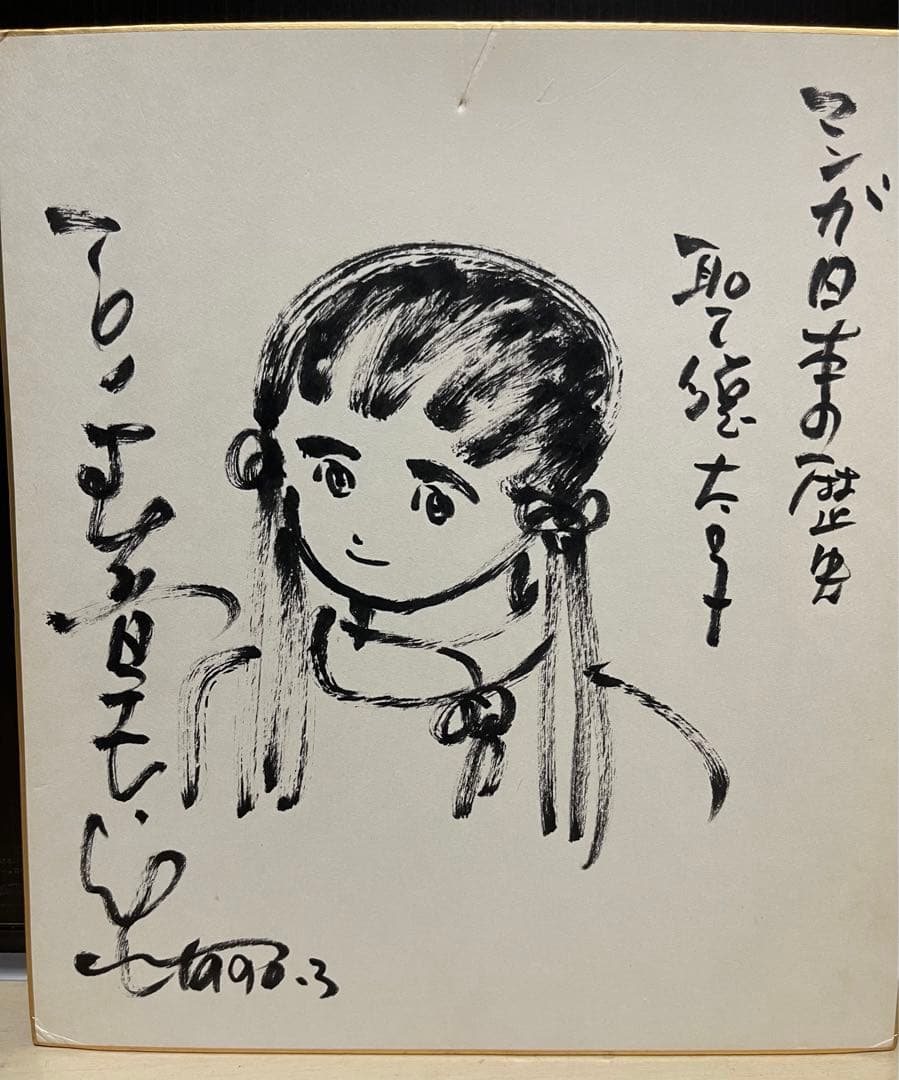 マンガ日本の歴史
聖徳太子
石ノ森章太郎